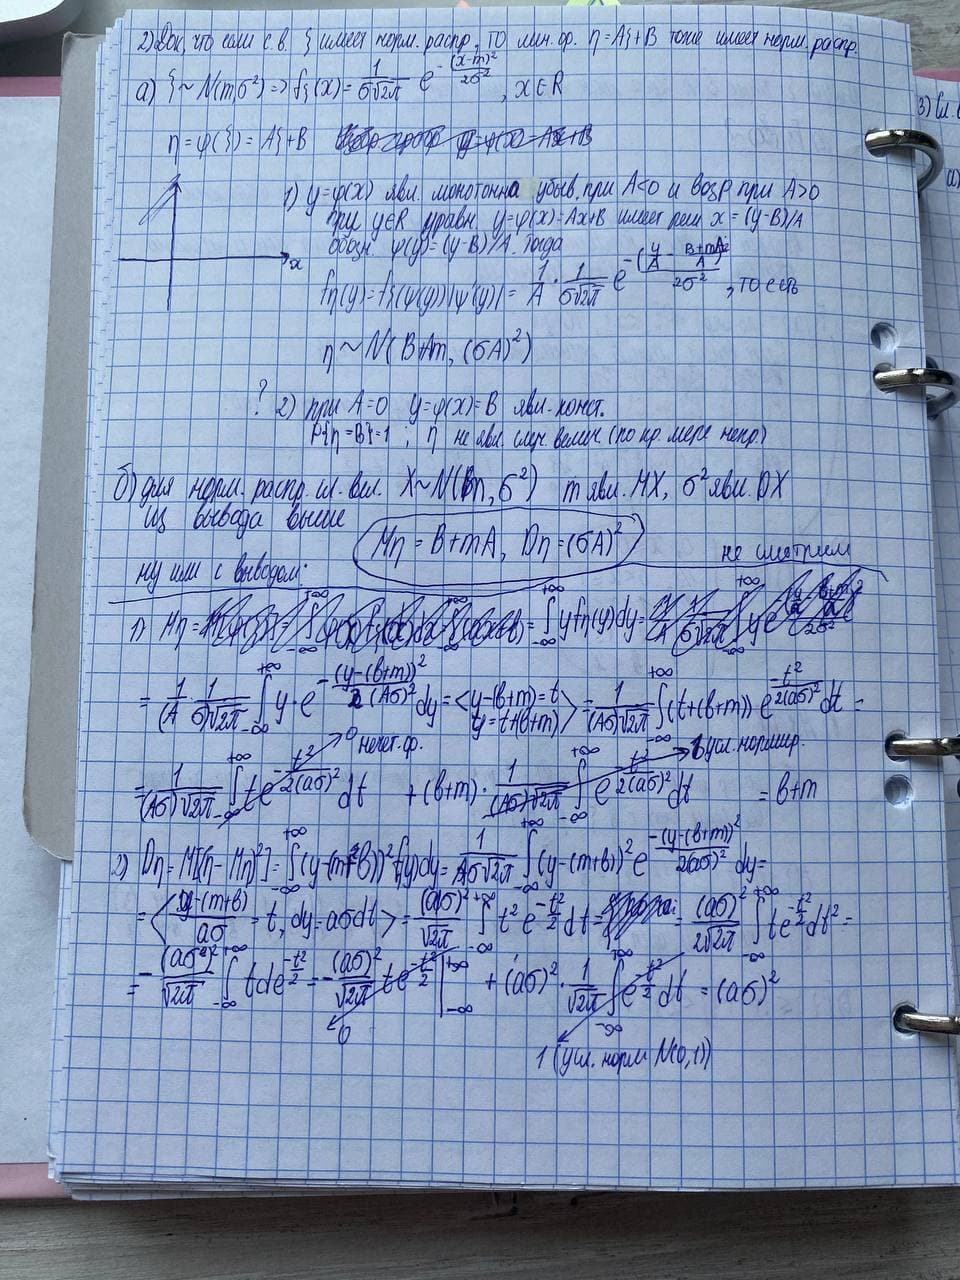 2) Док, что если с.в. ξ имеет норм. распр, то лин. ф. η = Aξ+B тоже имеет норм. распр.
а) ξ ~ N(m,σ²) => fξ(x) = 1/(σ√2π) e^(-(x-m)²/2σ²), x∈R
η = φ(ξ) = Aξ+B
1) y=φ(x) явл. монотонна убыв. при A<0 и возр при A>0
при y∈R уравн. y=φ(x)=Ax+B имеет реш x = (y-B)/A
обозн. ψ(y) = (y-B)/A. тогда
x
fη(y) = fξ(ψ(y))|ψ'(y)| = 1/A · 1/(σ√2π) e^(-(y/A - (B+mA)/A)²/2σ²), то есть
η ~ N(B+Am, (σA)²)
? 2) при A=0 y=φ(x)=B явл. конст.
P{η=B}=1 ; η не явл. случ велич (по кр. мере непр)
б) для норм. распр. сл. вел. X~N(m, σ²) m явл. MX, σ² явл. DX
из вывода выше
Mη = B+mA, Dη = (σA)²
не смотрим
ну или с выводом:
1) Mη = = ∫_{-∞}^{+∞} y fη(y)dy =
= 1/(A · 1/σ)√2π ∫_{-∞}^{+∞} y · e^(-(y-(b+m))²/2(Aσ)²) dy = <y-(b+m)=t y=t+(b+m)> = 1/((Aσ)√2π) ∫_{-∞}^{+∞} (t+(b+m)) e^(t²/2(aσ)²) dt =
= 1/((Aσ)√2π) ∫_{-∞}^{+∞} t e^(-t²/2(aσ)²) dt 0 нечет. ф. + (b+m) · 1/((Aσ)√2π) ∫_{-∞}^{+∞} e^(-t²/2(aσ)²) dt 1 усл. нормир. = b+m
2) Dη = M[(η-Mη)²] = ∫_{-∞}^{+∞} (y-(m+b))² f(y)dy = 1/(Aσ√2π) ∫_{-∞}^{+∞} (y-(m+b))² e^(-(y-(b+m))²/2(aσ)²) dy =
= <(y-(m+b))/aσ = t, dy = aσdt> = (aσ)²/√2π ∫_{-∞}^{+∞} t² e^(-t²/2) dt = = (aσ)²/2√2π ∫_{-∞}^{+∞} t e^(-t²/2) dt² =
= -(aσ)²/√2π ∫_{-∞}^{+∞} t de^(-t²/2) = -(aσ)²/√2π t e^(-t²/2) |_{-∞}^{+∞} + (aσ)² · 1/√2π ∫_{-∞}^{+∞} e^(-t²/2) dt = (aσ)²
0
1 (усл. норм N(0,1))